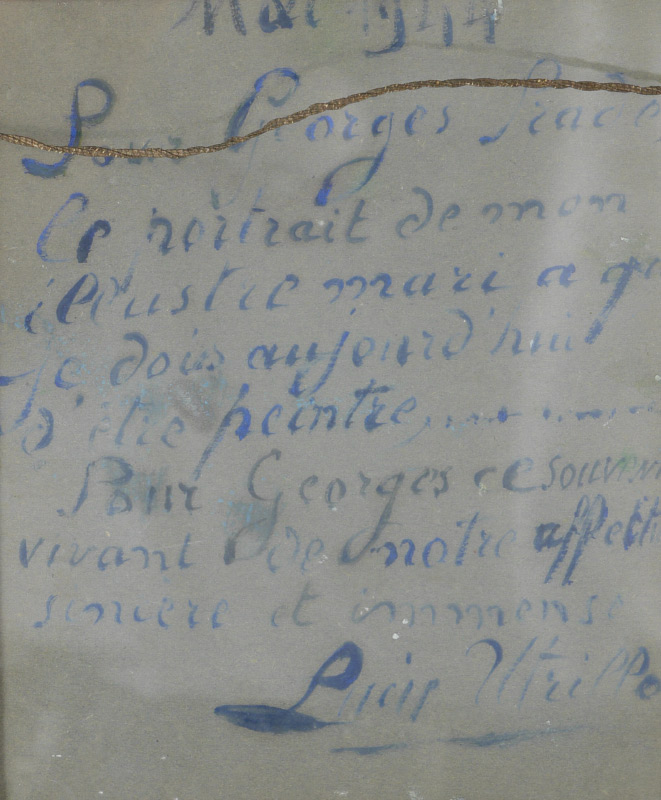 Mai 1944
Pour Georges Prade
Ce portrait de mon
illustre mari a qui
je dois aujourd'hui
d'être peintre,
Pour Georges ce souvenir
vivant de notre affection
sincère et immense
Lucie Utrillo